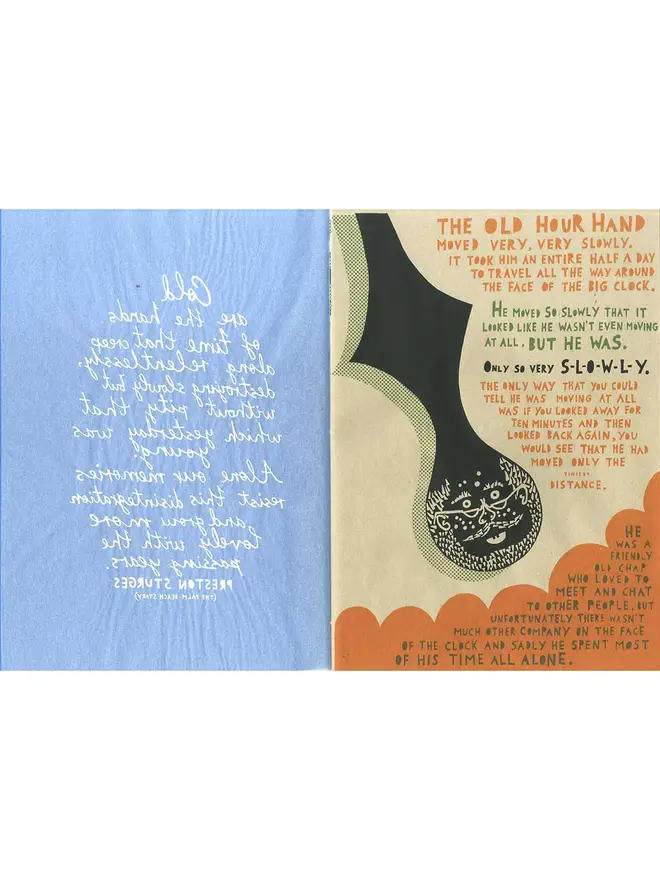 Cold
are the hands
of time that creep
along relentlessly,
destroying slowly but
without pity that
which yesterday was
young.
Alone our memories
resist this disintegration
and grow more
lovely with the
passing years.
PRESTON STURGES
(THE PALM BEACH STORY)
THE OLD HOUR HAND
MOVED VERY, VERY SLOWLY.
IT TOOK HIM AN ENTIRE HALF A DAY
TO TRAVEL ALL THE WAY AROUND
THE FACE OF THE BIG CLOCK.
HE MOVED SO SLOWLY THAT IT
LOOKED LIKE HE WASN'T EVEN MOVING
AT ALL, BUT HE WAS.
ONLY SO VERY S-L-O-W-L-Y.
THE ONLY WAY THAT YOU COULD
TELL HE WAS MOVING AT ALL
WAS IF YOU LOOKED AWAY FOR
TEN MINUTES AND THEN
LOOKED BACK AGAIN, YOU
WOULD SEE THAT HE HAD
MOVED ONLY THE
TINIEST
DISTANCE.
HE
WAS A
FRIENDLY
OLD CHAP
WHO LOVED TO
MEET AND CHAT
TO OTHER PEOPLE, BUT
UNFORTUNATELY THERE WASN'T
MUCH OTHER COMPANY ON THE FACE
OF THE CLOCK AND SADLY HE SPENT MOST
OF HIS TIME ALL ALONE.